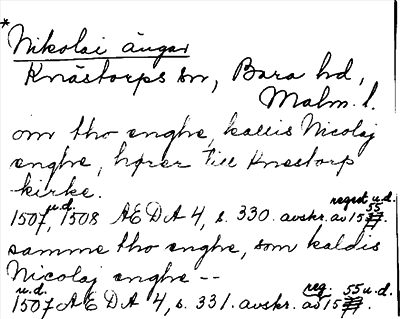 *Nikolai ängar
Knästorps sn, Bara hd,
Malm. l.
om tho enghe, kallis Nicolaj
enghe, hører till Knestorp
kirke.
regest u.d.
u.d. 55
1507, 1508 AEDA 4, s. 330. avskr. av 15
samme tho enghe, som kaldis
Nicolaj enghe --
u.d. reg. 55 u.d.
1507 AEDA 4, s. 331. avskr. av 15